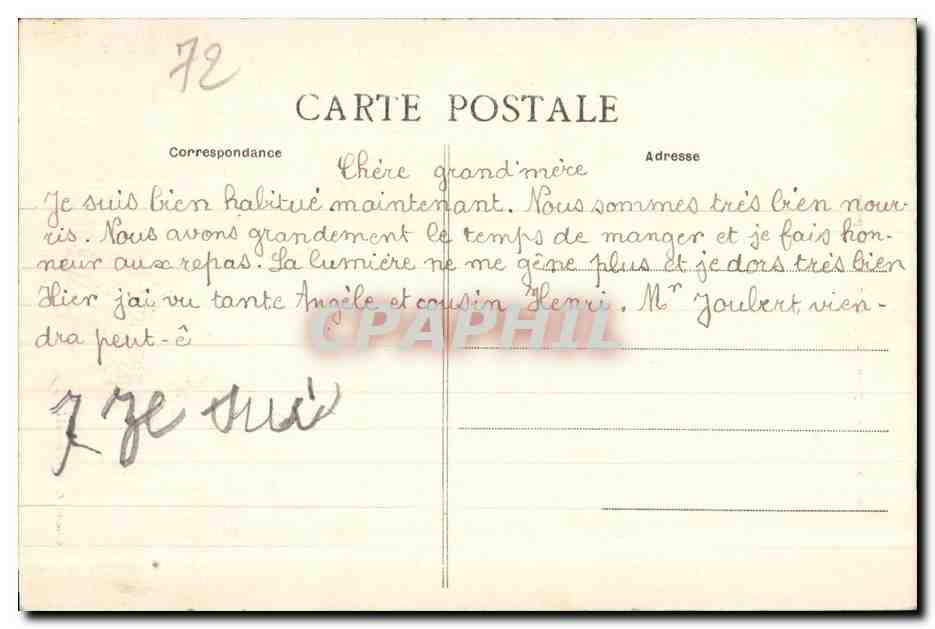 72
CARTE POSTALE
Correspondance
Adresse
Chère grand'mère
Je suis bien habitué maintenant. Nous sommes très bien nour-
ris. Nous avons grandement le temps de manger et je fais hon-
neur aux repas. La lumière ne me gêne plus et je dors très bien
Hier j'ai vu tante Angèle et cousin Henri. Mr Joubert vien-
dra peut-ê
CPAPHIL
7 Je sui